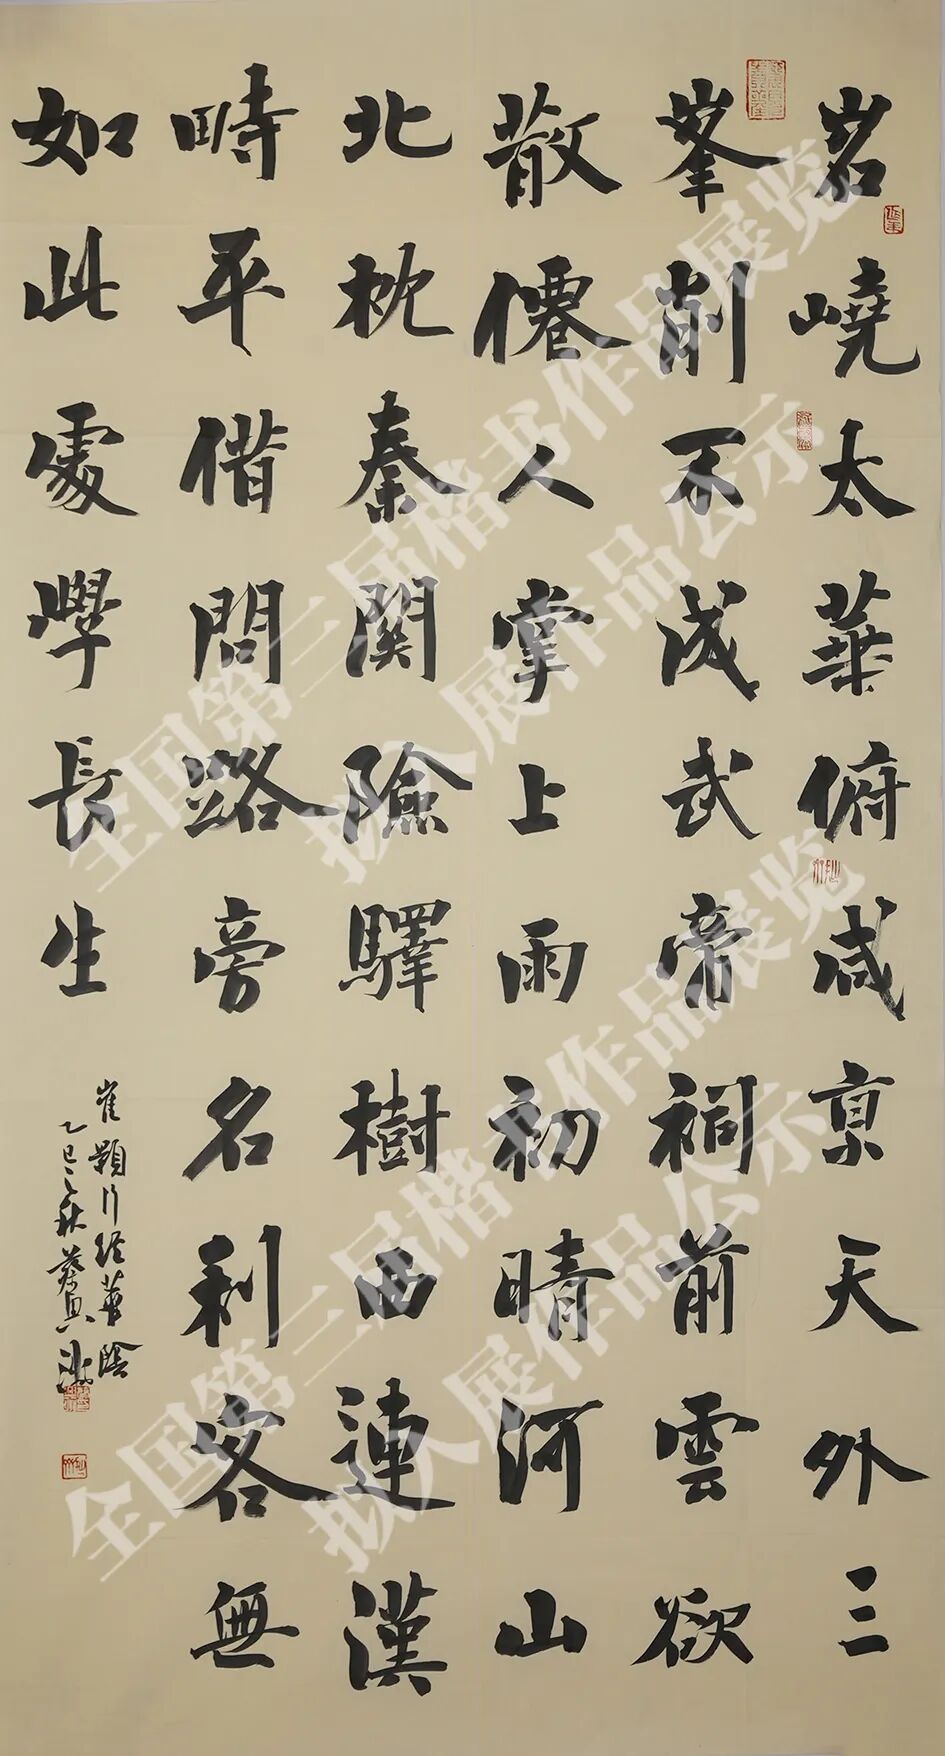 岧嶢太華俯咸亰天外三
峯削不成武帝祠前雲欲
散僊人掌上雨初晴河山
北枕秦關險驛樹西連漢
畤平借問路旁名利客無
如此處學長生
崔顥行經華陰
乙巳之秋蔡
全国第三届楷书作品展览
拟入展作品公示
全国第三届楷书作品展览
拟入展作品公示